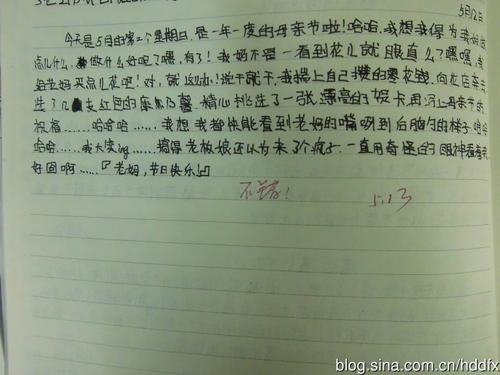 5月12日
今天是5月的第二个星期日，是一年一度的母亲节啦！哈哈，我想我得为我妈妈
点儿什么，做什么好呢？嘿，有了！我妈不是一看到花儿就眼直么？嘿嘿，
给老妈买点儿花吧！对，就这办！说干就干，我揣上自己攒的零花钱，向花店奔去
选了几支红色的康乃馨，精心挑选了一张漂亮的贺卡，再写上母亲节的
祝福……哈哈哈……我想我都快能看到老妈的嘴咧到后脑勺的样子，哈哈
哈哈……我大笑ing……搞得老板娘还以为来了个疯子，一直用奇怪的眼神看着我
好囧啊……『老妈，节日快乐』
不错！ 5.13
blog.sina.com.cn/hddfx